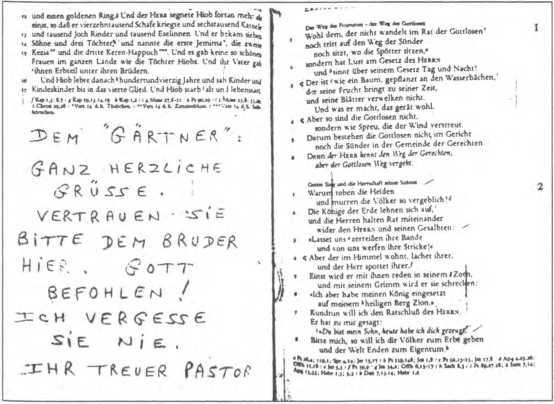 12 und einen goldenen Ring. Und der HERR segnete Hiob fortan mehr als
einst, so daß er vierzehntausend Schafe kriegte und sechstausend Kamele
13 und tausend Joch Rinder und tausend Eselinnen. Und er bekam sieben
14 Söhne und drei Töchter und nannte die erste Jemima, die zweite
15 Kezia und die dritte Keren-Happuch. Und es gab keine so schönen
Frauen im ganzen Lande wie die Töchter Hiobs. Und ihr Vater gab
ihnen Erbteil unter ihren Brüdern.
16 Und Hiob lebte danach hundertundvierzig Jahre und sah Kinder und
17 Kindeskinder bis in das vierte Glied. Und Hiob starb alt und lebenssatt.
DEM "GÄRTNER":
GANZ HERZLICHE
GRÜSSE.
VERTRAUEN SIE
BITTE DEM BRUDER
HIER. GOTT
BEFOHLEN!
ICH VERGESSE
SIE NIE.
IHR TREUER PASTOR
Der Weg des Frommen – der Weg des Gottlosen
1
Wohl dem, der nicht wandelt im Rat der Gottlosen
noch tritt auf den Weg der Sünder
noch sitzt, wo die Spötter sitzen,
2 sondern hat Lust am Gesetz des HERRN
und sinnt über seinem Gesetz Tag und Nacht!
3 Der ist wie ein Baum, gepflanzt an den Wasserbächen,
der seine Frucht bringt zu seiner Zeit,
und seine Blätter verwelken nicht.
Und was er macht, das gerät wohl.
4 Aber so sind die Gottlosen nicht,
sondern wie Spreu, die der Wind verstreut.
5 Darum bestehen die Gottlosen nicht im Gericht
noch die Sünder in der Gemeinde der Gerechten.
6 Denn der HERR kennt den Weg der Gerechten,
aber der Gottlosen Weg vergeht.
Gottes Sieg und die Herrschaft seines Sohnes
2
1 Warum toben die Heiden
und murren die Völker so vergeblich?
2 Die Könige der Erde lehnen sich auf,
und die Herren halten Rat miteinander
wider den HERRN und seinen Gesalbten:
3 »Lasset uns zerreißen ihre Bande
und von uns werfen ihre Stricke!«
4 Aber der im Himmel wohnt, lachet ihrer,
und der Herr spottet ihrer.
5 Einst wird er mit ihnen reden in seinem Zorn,
und mit seinem Grimm wird er sie schrecken:
6 »Ich aber habe meinen König eingesetzt
auf meinem heiligen Berg Zion.«
7 Kundtun will ich den Ratschluß des HERRN.
Er hat zu mir gesagt:
»Du bist mein Sohn, heute habe ich dich gezeugt.
8 Bitte mich, so will ich dir Völker zum Erbe geben
und der Welt Enden zum Eigentum.